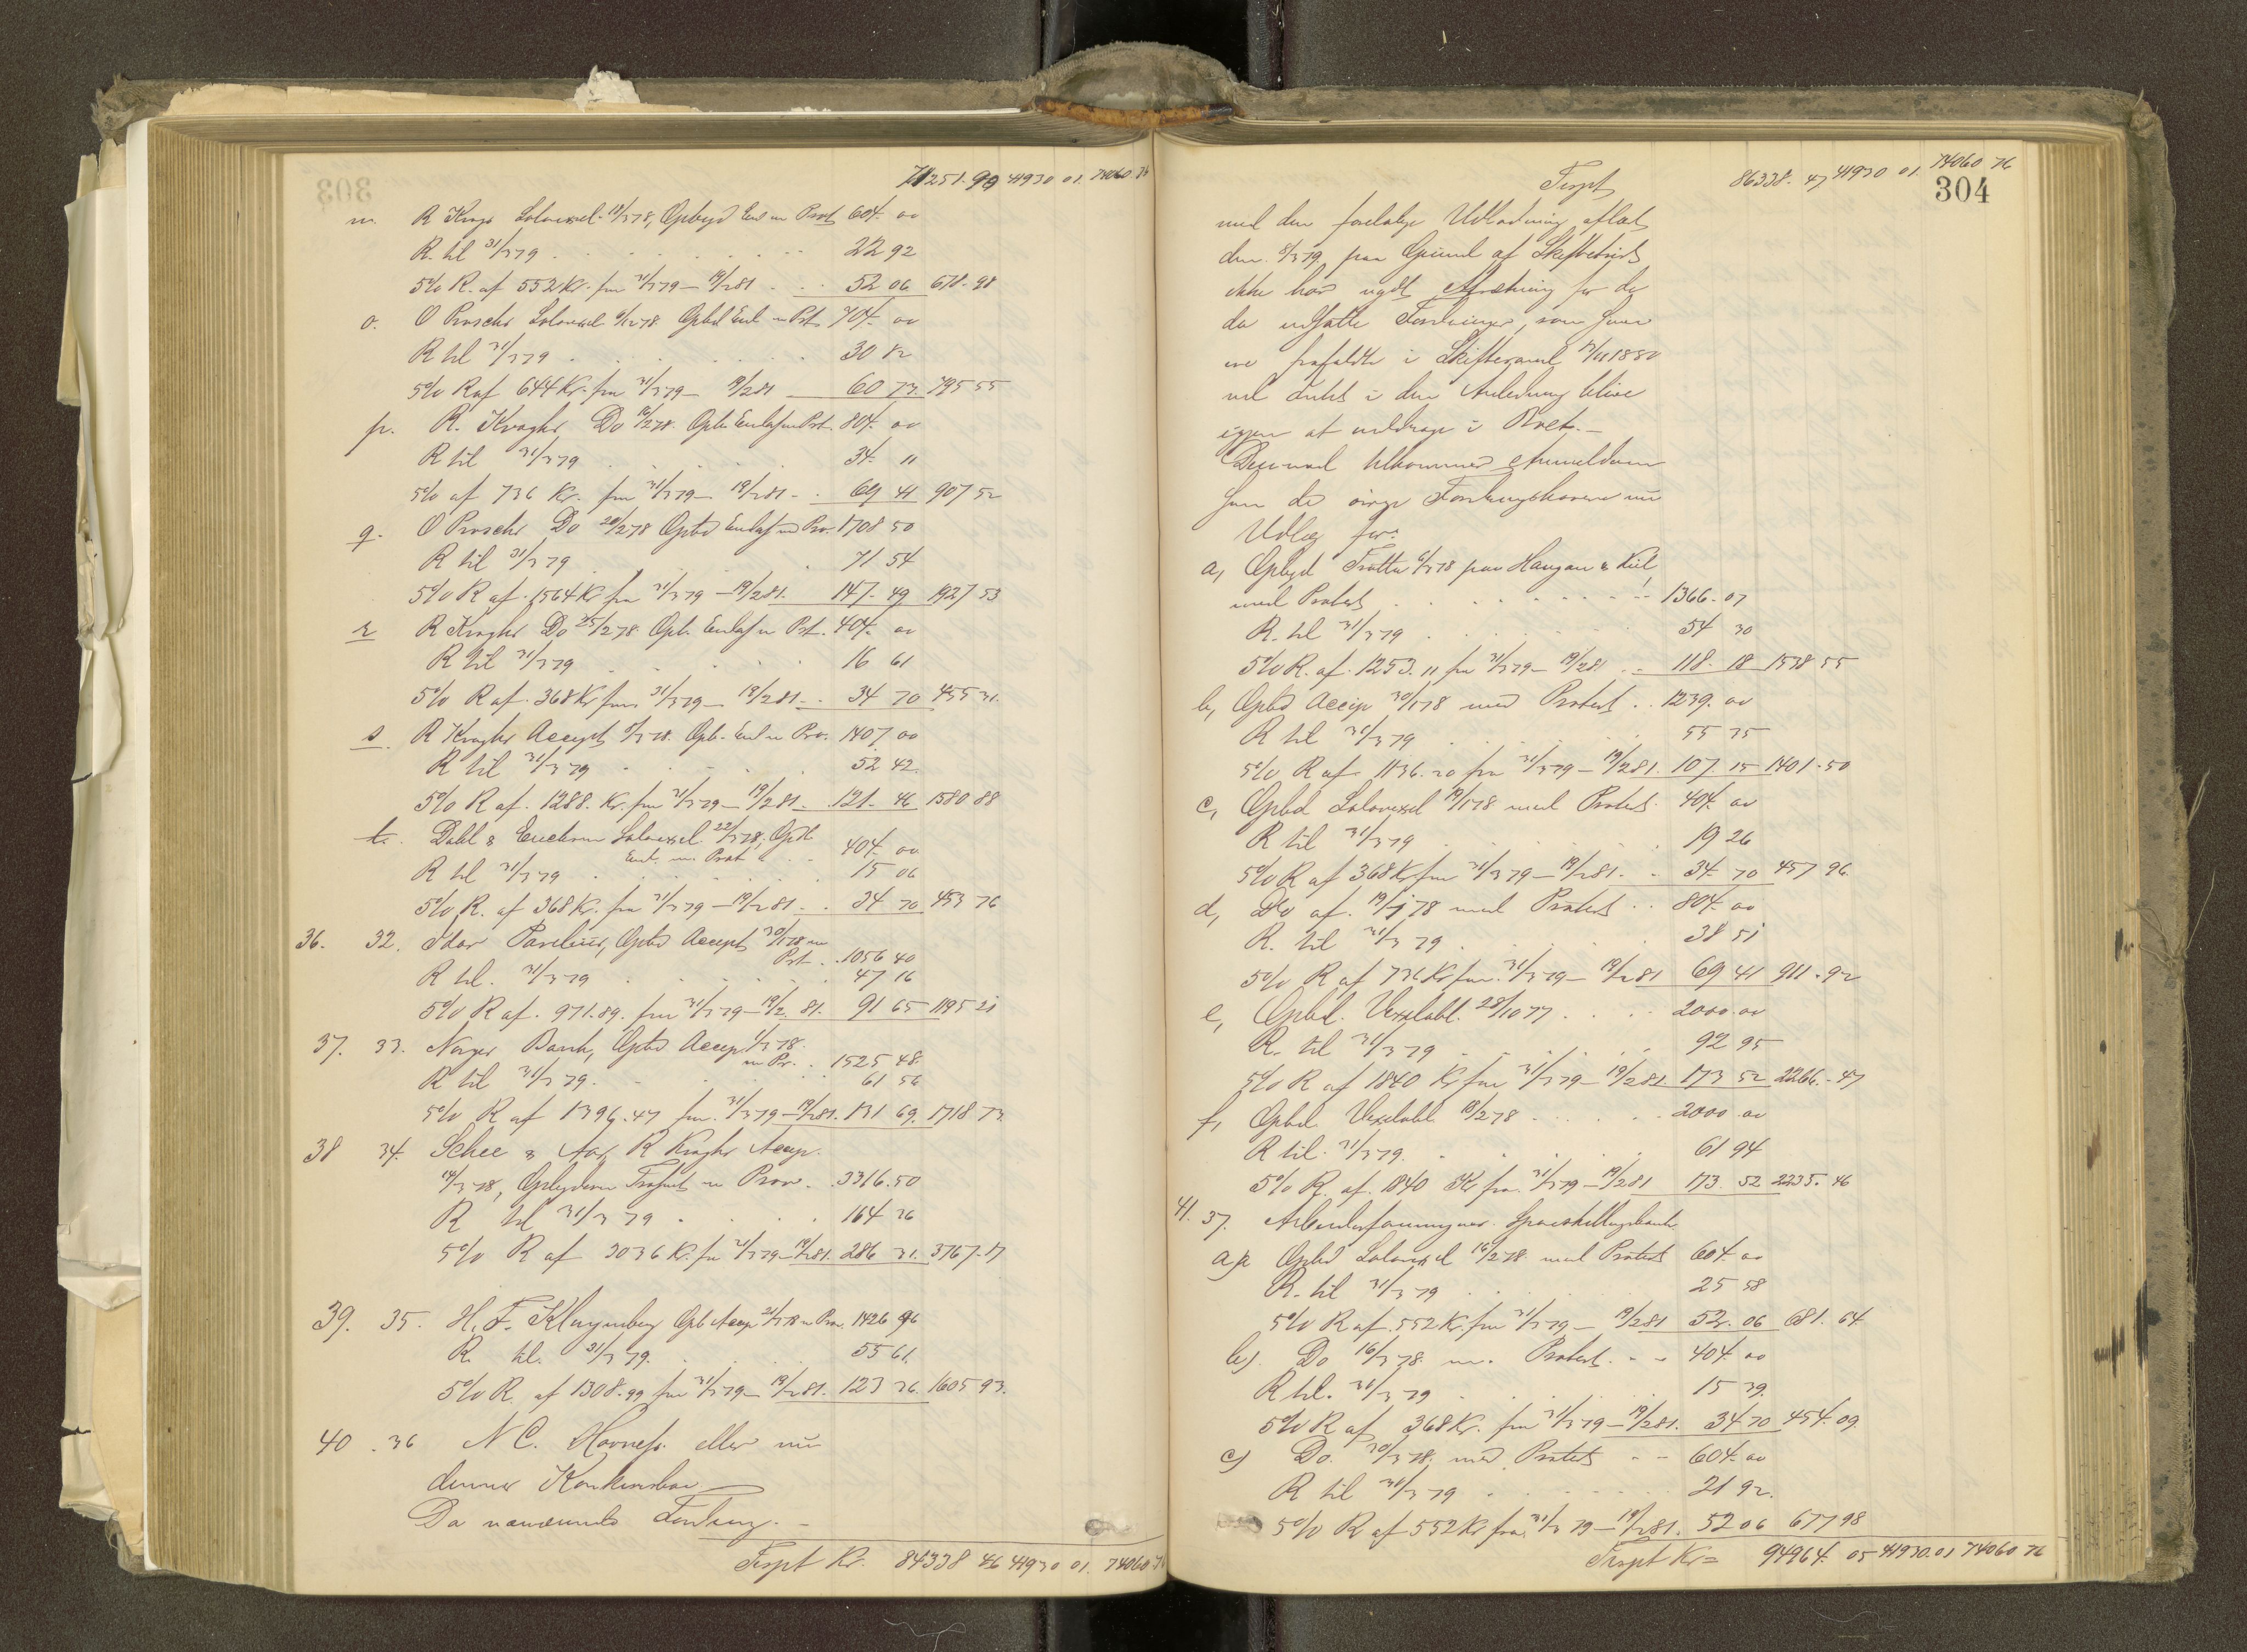 71251. 90 41930 01. 74060 76
m. R Kragh Solavexel 18/3 78, Opbyd Enl m Prot 604. 00
R. til 31/3 79 22 92
5% R. af 552 Kr. fra 31/3 79 - 19/2 81 52 06 678. 98
o. O Prosch Solavexel 6/12 78. Opbd Enl m Prt 704. 00
R til 31/3 79 30 82
5% R af 644 Kr. fra 31/3 79 - 19/2 81 60 73. 795 55
p. R. Kraghs Do Opb. m Prt. 804. 00
R til 31/3 79 34. 11
5% af 736 Kr. fra 31/3 79 - 19/2 81 69 41 907 52
q. O Prosch Do 20/2 78 Opbd m Pro. 1708 50
R til 31/3 79 71 54
5% R af 1564 Kr fra 31/3 79 - 19/2 81. 147. 49 1927 53
r R Kraghs Do 25/2 78 Opb. m Prt. 404. 00
R til 31/3 79 16 61
5% R af 368 Kr fra 31/3 79 - 19/2 81 34 70 455 31.
s. R Kraghs Accept 5/3 78. Opb. Enl m Pro. 1407 00
R til 31/3 79 52 42.
5% R af 1288. Kr. fra 31/3 79 - 19/2 81 121. 46 1580 88
t. Dahl & Solavexel 22/3 78, Opb
Enl. m. Prot 404. 00
R til 31/3 79 15 06
5% R. af 368 Kr. fra 31/3 79 - 19/2 81 34 70 453 76
36. 32. Opbd Accept 30/1 78 m
Prt 1056 40
R til. 31/3 79 47 16
5% R af. 971.89. fra 31/3 79 - 19/2 81. 91 65 1195 21
37. 33. Norges Bank, Opbd Accept 1/3 78.
m Pr. 1525 48.
R til 31/3 79. 61 56
5% R af 1396.47 fra. 31/3 79 - 19/2 81. 131 69. 1718 73.
38 34. Schee & Aas, R Kraghs Accp.
78, m Prov. 3316.50
R til 31/3 79 164 36
5% R af 3036 Kr. fra 31/3 79 - 19/2 81. 286 31. 3767. 17
39. 35. H. F. Klingenberg Opb Accep m Prov. 1426 96
R. til. 31/3 79. 55 61.
5% R. af 1308.99 fra 31/3 79 - 19/2 81. 123 36. 1605 93.
40. 36 N C. Havnefs. eller nu
dennes Konkursbo.
Da Fordring.
Trspt Kr. 84338 46 41930 01. 74060 76
304
Trspt 86338. 47 41930 01. 74060 76
med den forelobige Udlodning aflat
den 8/3 79, paa Grund af
ikke har nydt for de
da udsatte Fordringer, som hvor
ere frafaldte i Skiftesaml 13/11 1880
vil dette i den Anledning blive
igjen at i Boet.
Dessuden tilkommer Anmelderen
som de øvrige Fordringshavere nu
Udlæg for:
a, Opbyd Tratte 6/3 78 paa Haugan & Kiil
med Protest 1366. 07
R. til 31/3 79 54 30
5% R. af. 1253. 11 fra 31/3 79 - 19/2 81 118. 18 1538 55
b, Opbd Accep 30/1 78 med Protest 1239. 00
R til 31/3 79 55 35
5% R af 1136. 20 fra 31/3 79 - 19/2 81. 107. 15 1401. 50
c, Opbd Solavexel 19/1 78 med Protest. 404. 00
R til 31/3 79 19 26
5% R af 368 Kr fra 31/3 79 - 19/2 81. 34. 70 457 96.
d, Do af. 19/1 78 med Protest 804. 00
R. til 31/3 79 38 51
5% R af 736 Kr fra 31/3 79 - 19/2 81 69 41 911. 92
e, Opbd. Vexelobl. 28/10 77 2000. 00
R. til 31/3 79 92 95
5% R af 1840 Kr fra 31/3 79 - 19/2 81 173 52 2266. 47
f, Opbd. Vexelobl. 18/2 78 2000. 00
R til. 31/3 79. 61 94
5% R. af. 1840 Kr fra. 31/3 79 - 19/2 81 173. 52 2235. 46
41. 37. Arbeiderforeningens Spareskillingsbank
a, Opbd Solavexel 16/2 78. med Protest 604. 00
R. til 31/3 79 25 58
5% R af. 552 Kr. fra 31/3 79 - 19/2 81 52. 06 681. 64
b). Do 16/3 78. m. Protest. 404. 00
R til. 31/3 79 15 39.
5% R af 368 Kr. fra 31/3 79 - 19/2 81. 34 70 454. 09.
c) Do. 30/3 78. med Protest 604. 00
R til 31/3 79 21 92.
5% R af 552 Kr fra 31/3 79 - 19/2 81. 52 06 677 98
Trspt Kr = 94964. 05 41930.01 74060. 76